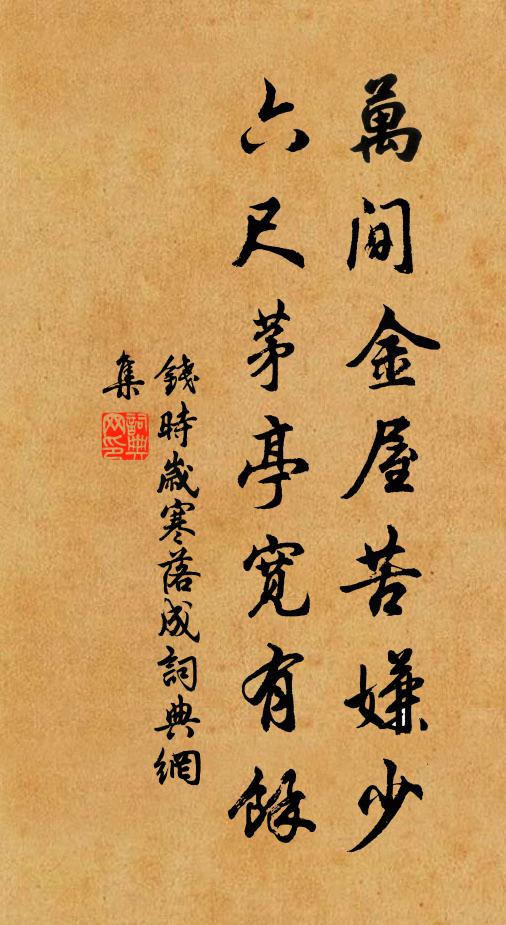 萬间金屋苦嫌少
六尺茅亭寬有餘
錢時歲寒落成詞典網
集
詞典網印